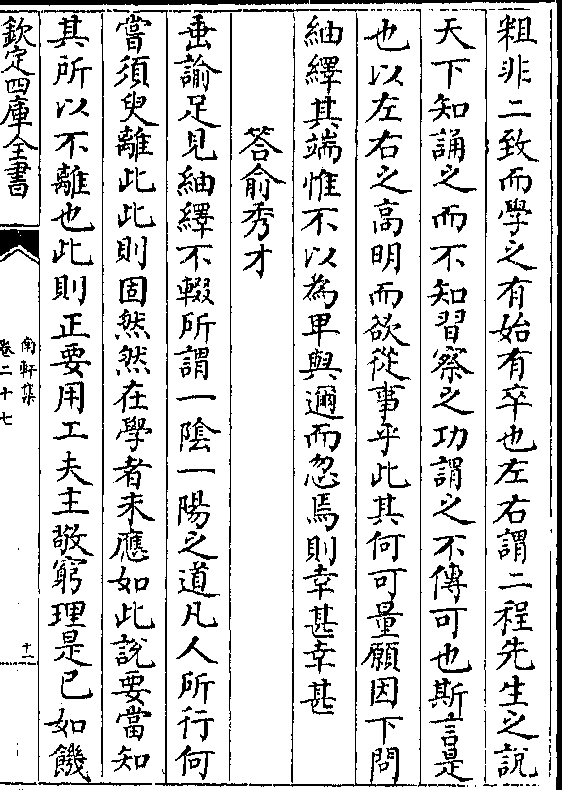 粗非二致而學之有始有卒也左右謂二程先生之說
天下知誦之而不知習察之功謂之不傳可也斯言是
也以左右之高明而欲從事乎此其何可量願因下問
紬繹其端惟不以為卑與邇而忽焉則幸甚幸甚
答俞秀才
垂諭足見紬繹不輟所謂一陰一陽之道凡人所行何
嘗須臾離此此則固然然在學者未應如此說要當知
其所以不離也此則正要用工夫主敬窮理是已如饑
欽定四庫全書
南軒集
卷二十七
十一